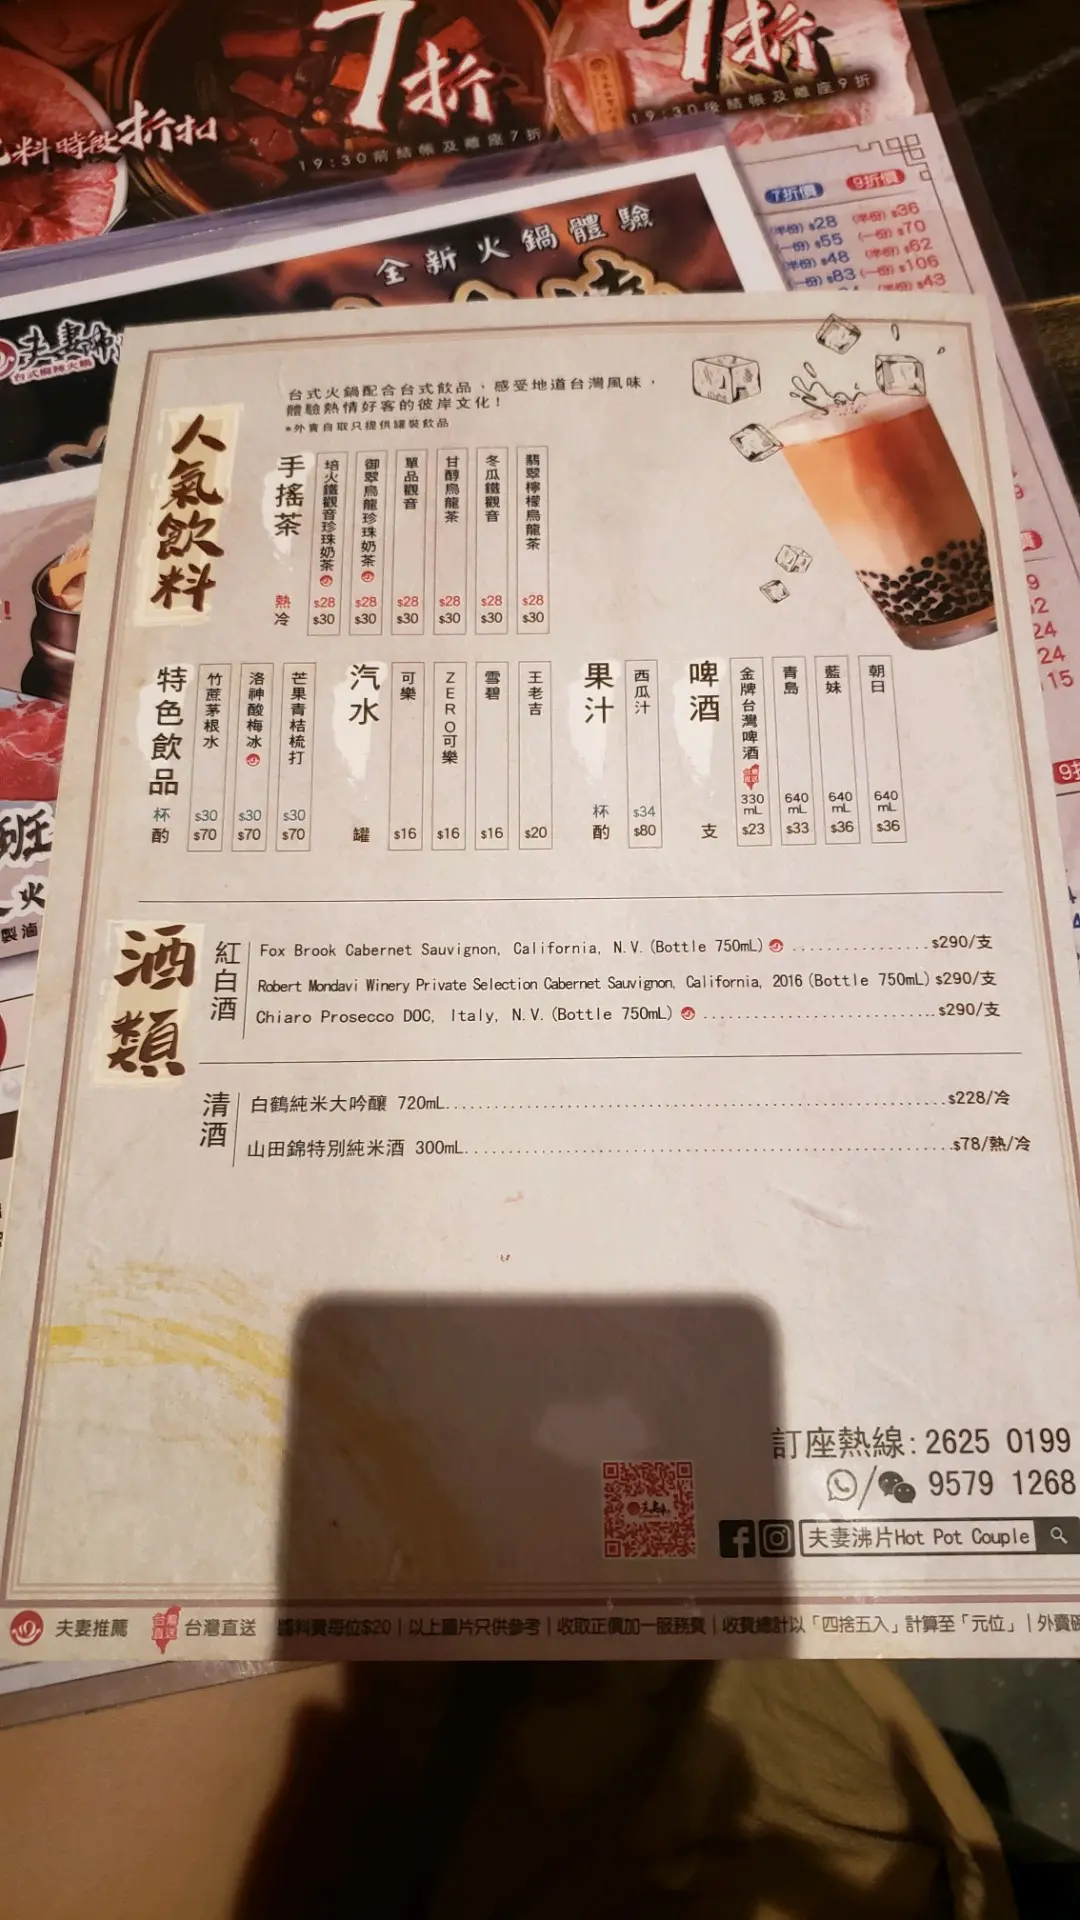 7折
9折
料時段折扣
19:30前結帳及離座7折
19:30後結帳及離座9折
7折價
9折價
(半份) $28 (半份) $36
(一份) $55 (一份) $70
(半份) $48 (半份) $62
(一份) $83 (一份) $106
$43
全新火鍋體驗
夫妻沸
台式麻辣火鍋
台式火鍋配合台式飲品、感受地道台灣風味，
體驗熱情好客的彼岸文化！
*外賣自取只提供罐裝飲品
人氣飲料
手搖茶
熱
冷
培火鐵觀音珍珠奶茶 $28 $30
御翠烏龍珍珠奶茶 $28 $30
單品觀音 $28 $30
甘醇烏龍茶 $28 $30
冬瓜鐵觀音 $28 $30
翡翠檸檬烏龍茶 $28 $30
特色飲品
杯
酌
竹蔗茅根水 $30 $70
洛神酸梅冰 $30 $70
芒果青桔梳打 $30 $70
汽水
罐
可樂 $16
ZERO可樂 $16
雪碧 $16
王老吉 $20
果汁
杯
酌
西瓜汁 $34 $80
啤酒
支
金牌台灣啤酒 330 mL $23
青島 640 mL $33
藍妹 640 mL $36
朝日 640 mL $36
酒類
紅白酒
Fox Brook Cabernet Sauvignon, California, N.V. (Bottle 750mL) ................$290/支
Robert Mondavi Winery Private Selection Cabernet Sauvignon, California, 2016 (Bottle 750mL) $290/支
Chiaro Prosecco DOC, Italy, N.V. (Bottle 750mL) ...........................$290/支
清酒
白鶴純米大吟釀 720mL..........................................................$228/冷
山田錦特別純米酒 300mL.........................................................$78/熱/冷
訂座熱線: 2625 0199
/ 9579 1268
夫妻沸片Hot Pot Couple
夫妻推薦 台灣直送 台灣直送 醬料費每位$20 | 以上圖片只供參考 | 收取正價加一服務費 | 收費總計以「四捨五入」計算至「元位」 | 外賣